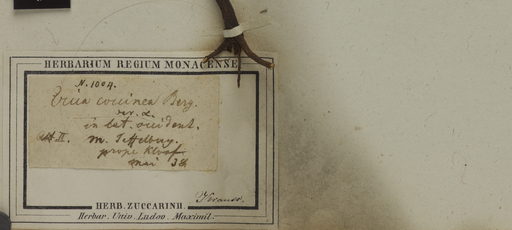 HERBARIUM REGIUM MONACENSE
N. 1004.
Erica coccinea Berg.
var. α.
in lat. occident.
m. Teffelberg.
prope Kloof
mai 38
Krauss.
HERB. ZUCCARINII.
Herbar. Univ. Ludov. Maximil.